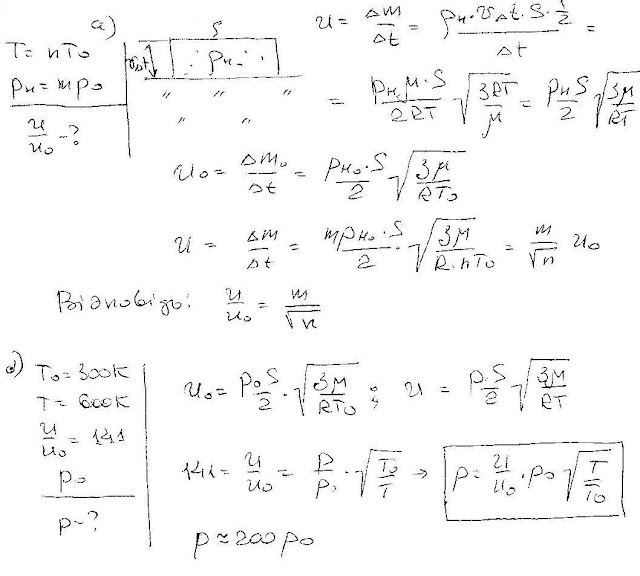 a)
T = nT₀
pн = mp₀
u/u₀ - ?
S
vΔt
ρн
u = Δm/Δt = ρн·vΔt·S·½/Δt =
= pн·μ·S/2RT √(3RT/μ) = pнS/2 √(3μ/RT)
u₀ = Δm₀/Δt = pн₀·S/2 √(3μ/RT₀)
u = Δm/Δt = mpн₀·S/2 · √(3μ/R·nT₀) = m/√n u₀
Відповідь: u/u₀ = m/√n
б) T₀ = 300K
T = 600K
u/u₀ = 141
p₀
p - ?
u₀ = p₀S/2 · √(3μ/RT₀) ; u = p·S/2 √(3μ/RT)
141 = u/u₀ = p/p₀ · √(T₀/T) → p = u/u₀ · p₀ √(T/T₀)
p ≈ 200 p₀